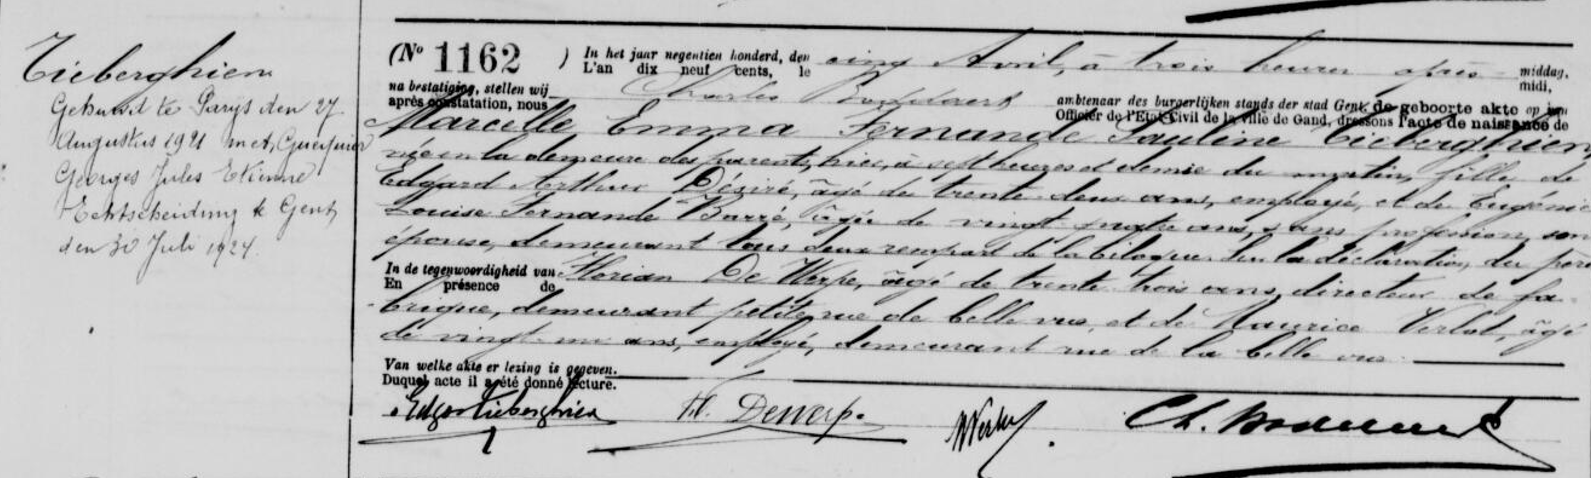 Tieberghien
Gehuwd te Parys den 27
Augustus 1921 met
Georges Jules Etienne
Echtscheiding te Gent,
den 30 Juli 1924.
(No 1162 ) In het jaar negentien honderd, den
L'an dix neuf cents, le cinq Avril, à trois heures après middag,
midi,
na bestatiging, stellen wij
après constatation, nous Charles ambtenaar des burgerlijken stands der stad Gent, de geboorte akte op van
Officier de l'Etat Civil de la ville de Gand, dressons l'acte de naissance de
Marcelle Emma Fernande Pauline Tieberghien,
née en la demeure des parents, hier, à sept heures et demie du matin, fille de
Edgard Arthur Désiré, âgé de trente deux ans, employé, et de Eugénie
Louise Fernande Barré, âgée de vingt quatre ans, sans profession, son
épouse, demeurant tous deux rempart de la biloque. Sur la déclaration du père
In de tegenwoordigheid van
En présence de Florian De Werpe, âgé de trente trois ans, directeur de fa-
brique, demeurant petite rue de belle vue, et de Maurice Verlot, âgé
de vingt un ans, employé, demeurant rue de la belle vue.
Van welke akte er lezing is gegeven.
Duquel acte il a été donné lecture.
Edgar Tieberghien Fl. Dewerpe Ch.